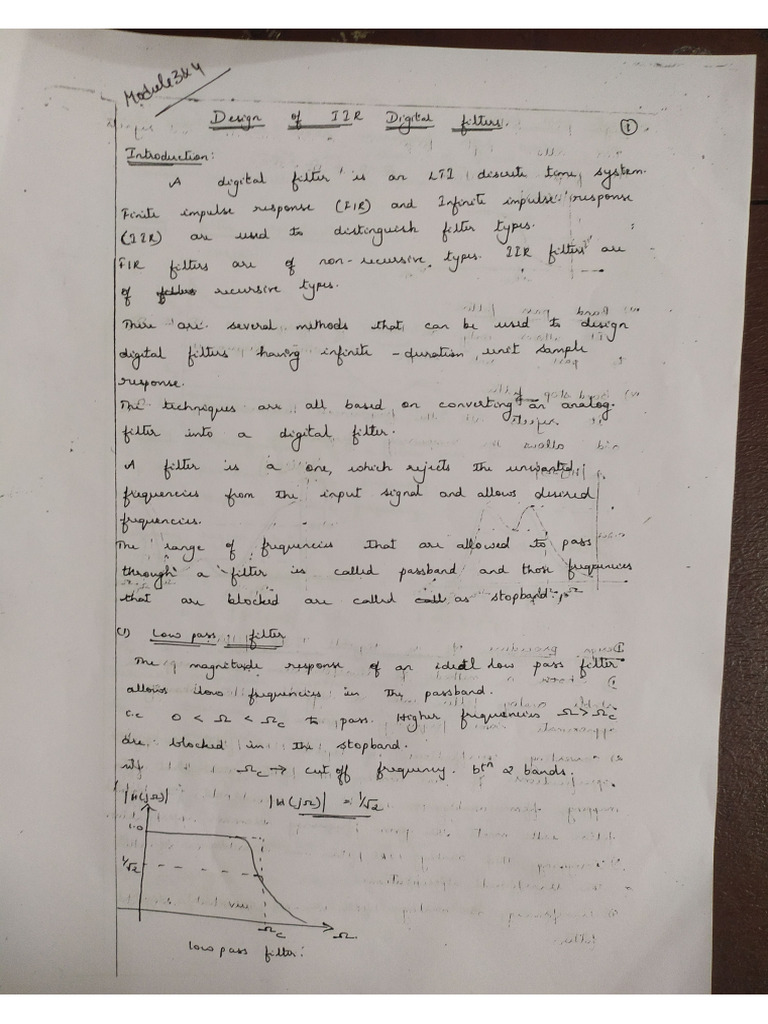 Module 3 & 4
Design of IIR Digital filters.
1
Introduction:
A digital filter is an LTI discrete time system.
Finite impulse response (FIR) and Infinite impulse response
(IIR) are used to distinguesh filter types.
FIR filters are of non-recursive types. IIR filters are
of recursive types.
There are several methods that can be used to design
digital filters having infinite - duration unit sample
response.
The techniques are all based on converting an analog
filter into a digital filter.
A filter is a one, which rejects the unwanted
frequencies from the input signal and allows desired
frequencies.
The range of frequencies that are allowed to pass
through a filter is called passband and those frequences
that are blocked are called as stopband.
(1) Low pass filter
The magnitude response of an ideal low pass filter
allows low frequencies in the passband.
0 < Ω < Ωc to pass. Higher frequencies Ω > Ωc
are blocked in the stopband.
Ωc → cut off frequency. btn 2 bands.
|H(jΩ)| |H(jΩ)| = 1/√2
1.0
1/√2
Ωc Ω.
Low pass filter: